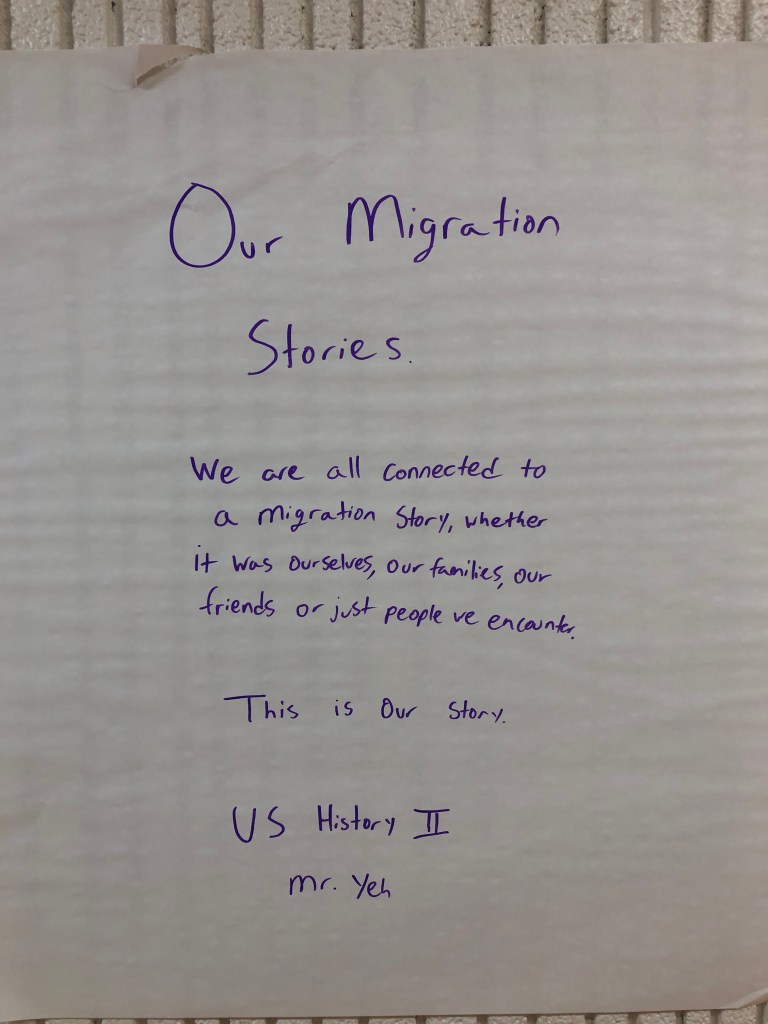 Our Migration
Stories.
We are all connected to
a migration story, whether
it was ourselves, our families, our
friends or just people ve encounter.
This is Our Story.
US History II
Mr. Yeh